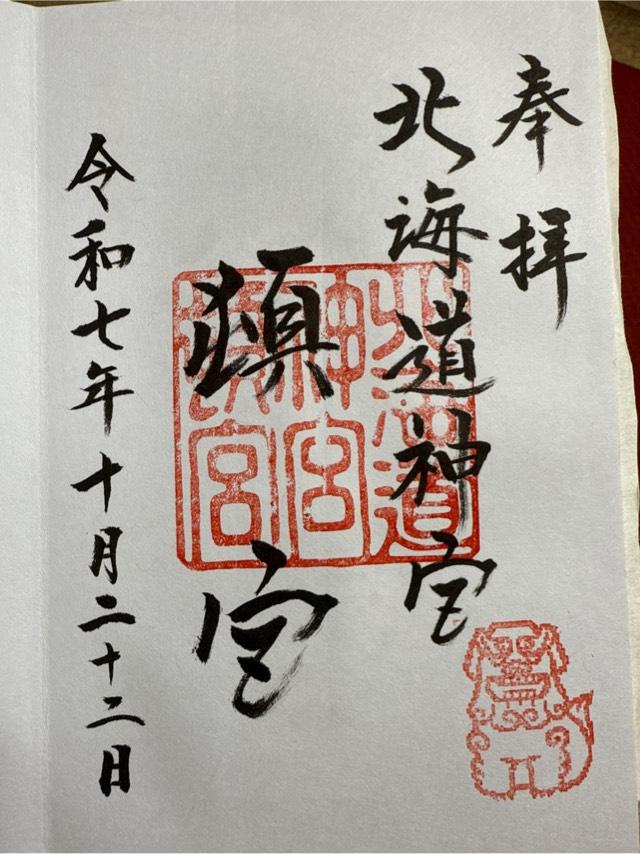 奉拝
北海道神宮
頓宮
令和七年十月二十二日
北海道
神宮
頓宮